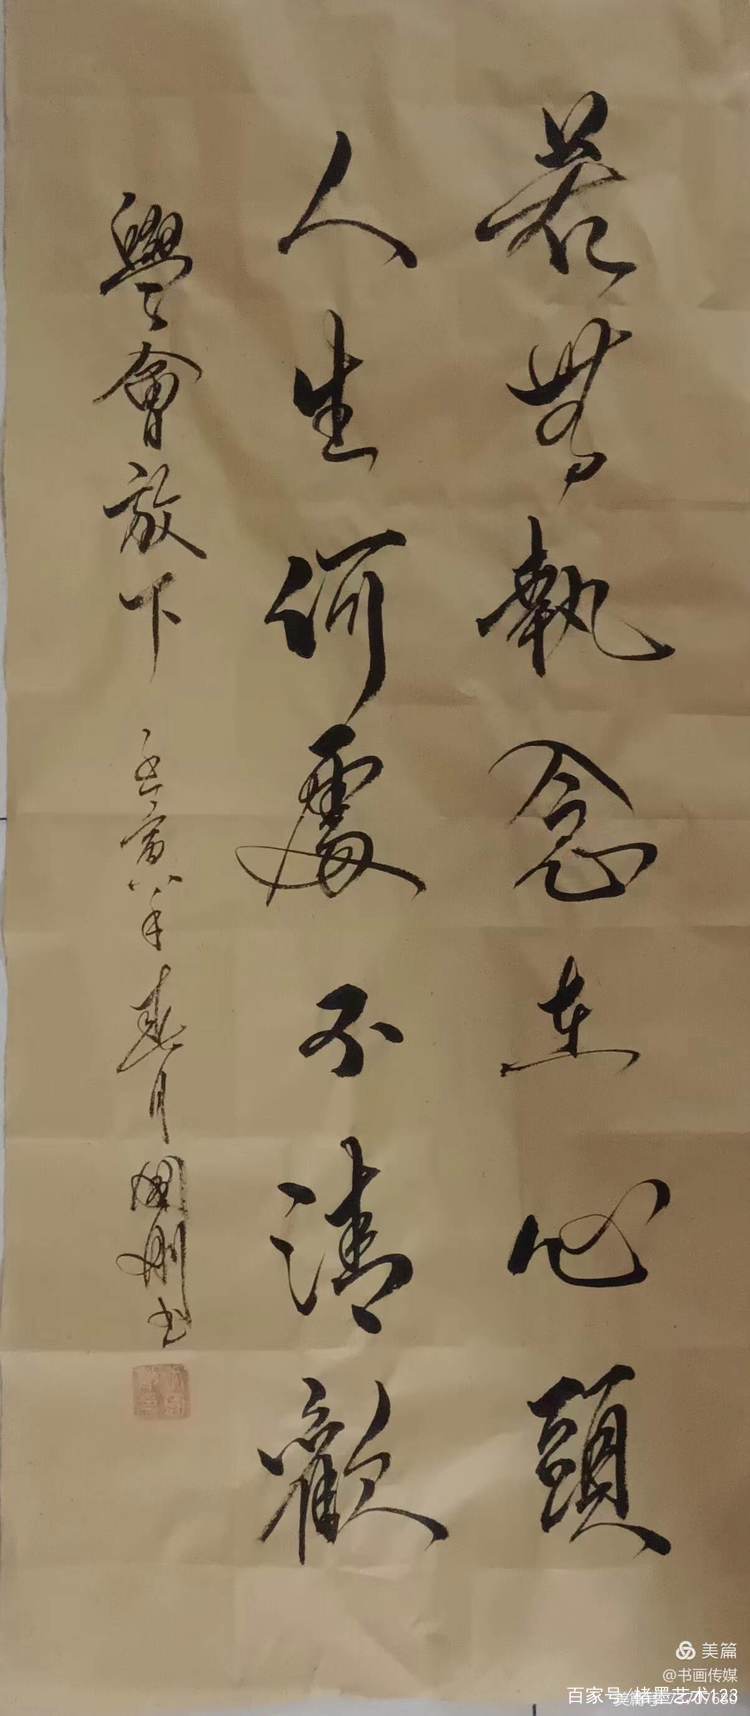 若無執念在心頭
人生何處不清歡
學會放下
壬寅年春月國刚书
美篇
@书画传媒
百家号/楮墨艺术123